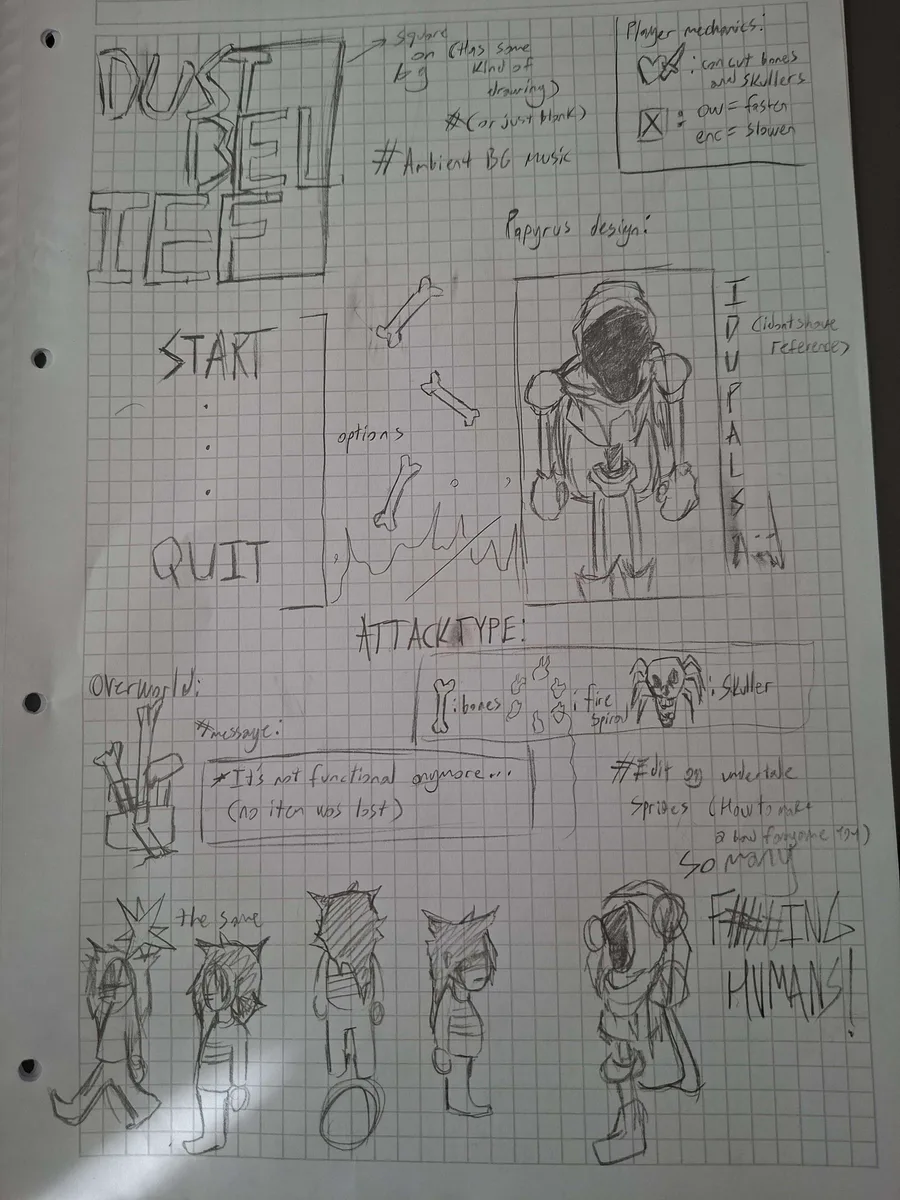 DUST
BEL
IEF
square
on (Has some
bg kind of
drawing)
*(or just blank)
# Ambient BG music
Player mechanics:
: can cut bones
and skullers
X : ow = faster
enc = slower
Papyrus design:
START
.
.
.
QUIT
options
I
D
U
P
A
L
S
(idontshave
reference)
ATTACK TYPE:
: bones
: fire
spiral
: Skuller
Overworld:
*message:
*It's not functional anymore...
(no item was lost)
#Edit on undertale
Sprites (How to make
the same
So many
F###ING
HUMANS!